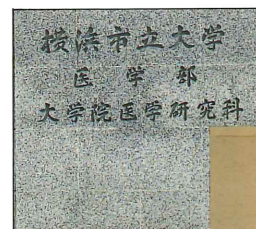 横浜市立大学
医学部
大学院医学研究科